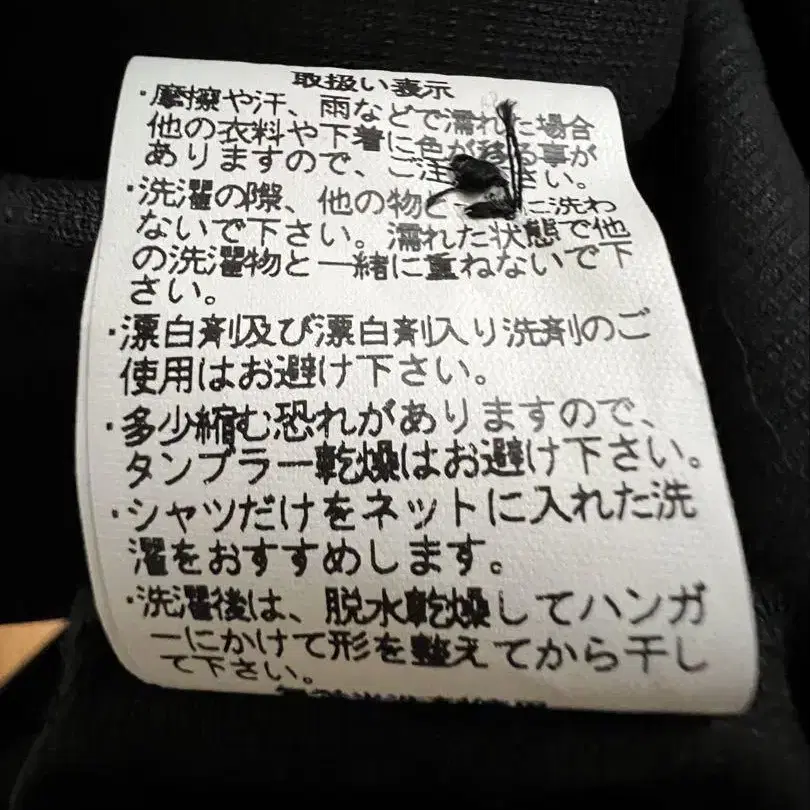 取扱い表示
・摩擦や汗、雨などで濡れた場合
他の衣料や下着に色が移る事が
ありますので、ご注 さい。
・洗濯の際、他の物と一 に洗わ
ないで下さい。濡れた状態で他
の洗濯物と一緒に重ねないで下
さい。
・漂白剤及び漂白剤入り洗剤のご
使用はお避け下さい。
・多少縮む恐れがありますので、
タンブラー乾燥はお避け下さい。
・シャツだけをネットに入れた洗
濯をおすすめします。
・洗濯後は、脱水乾燥してハンガ
ーにかけて形を整えてから干し
て下さい。